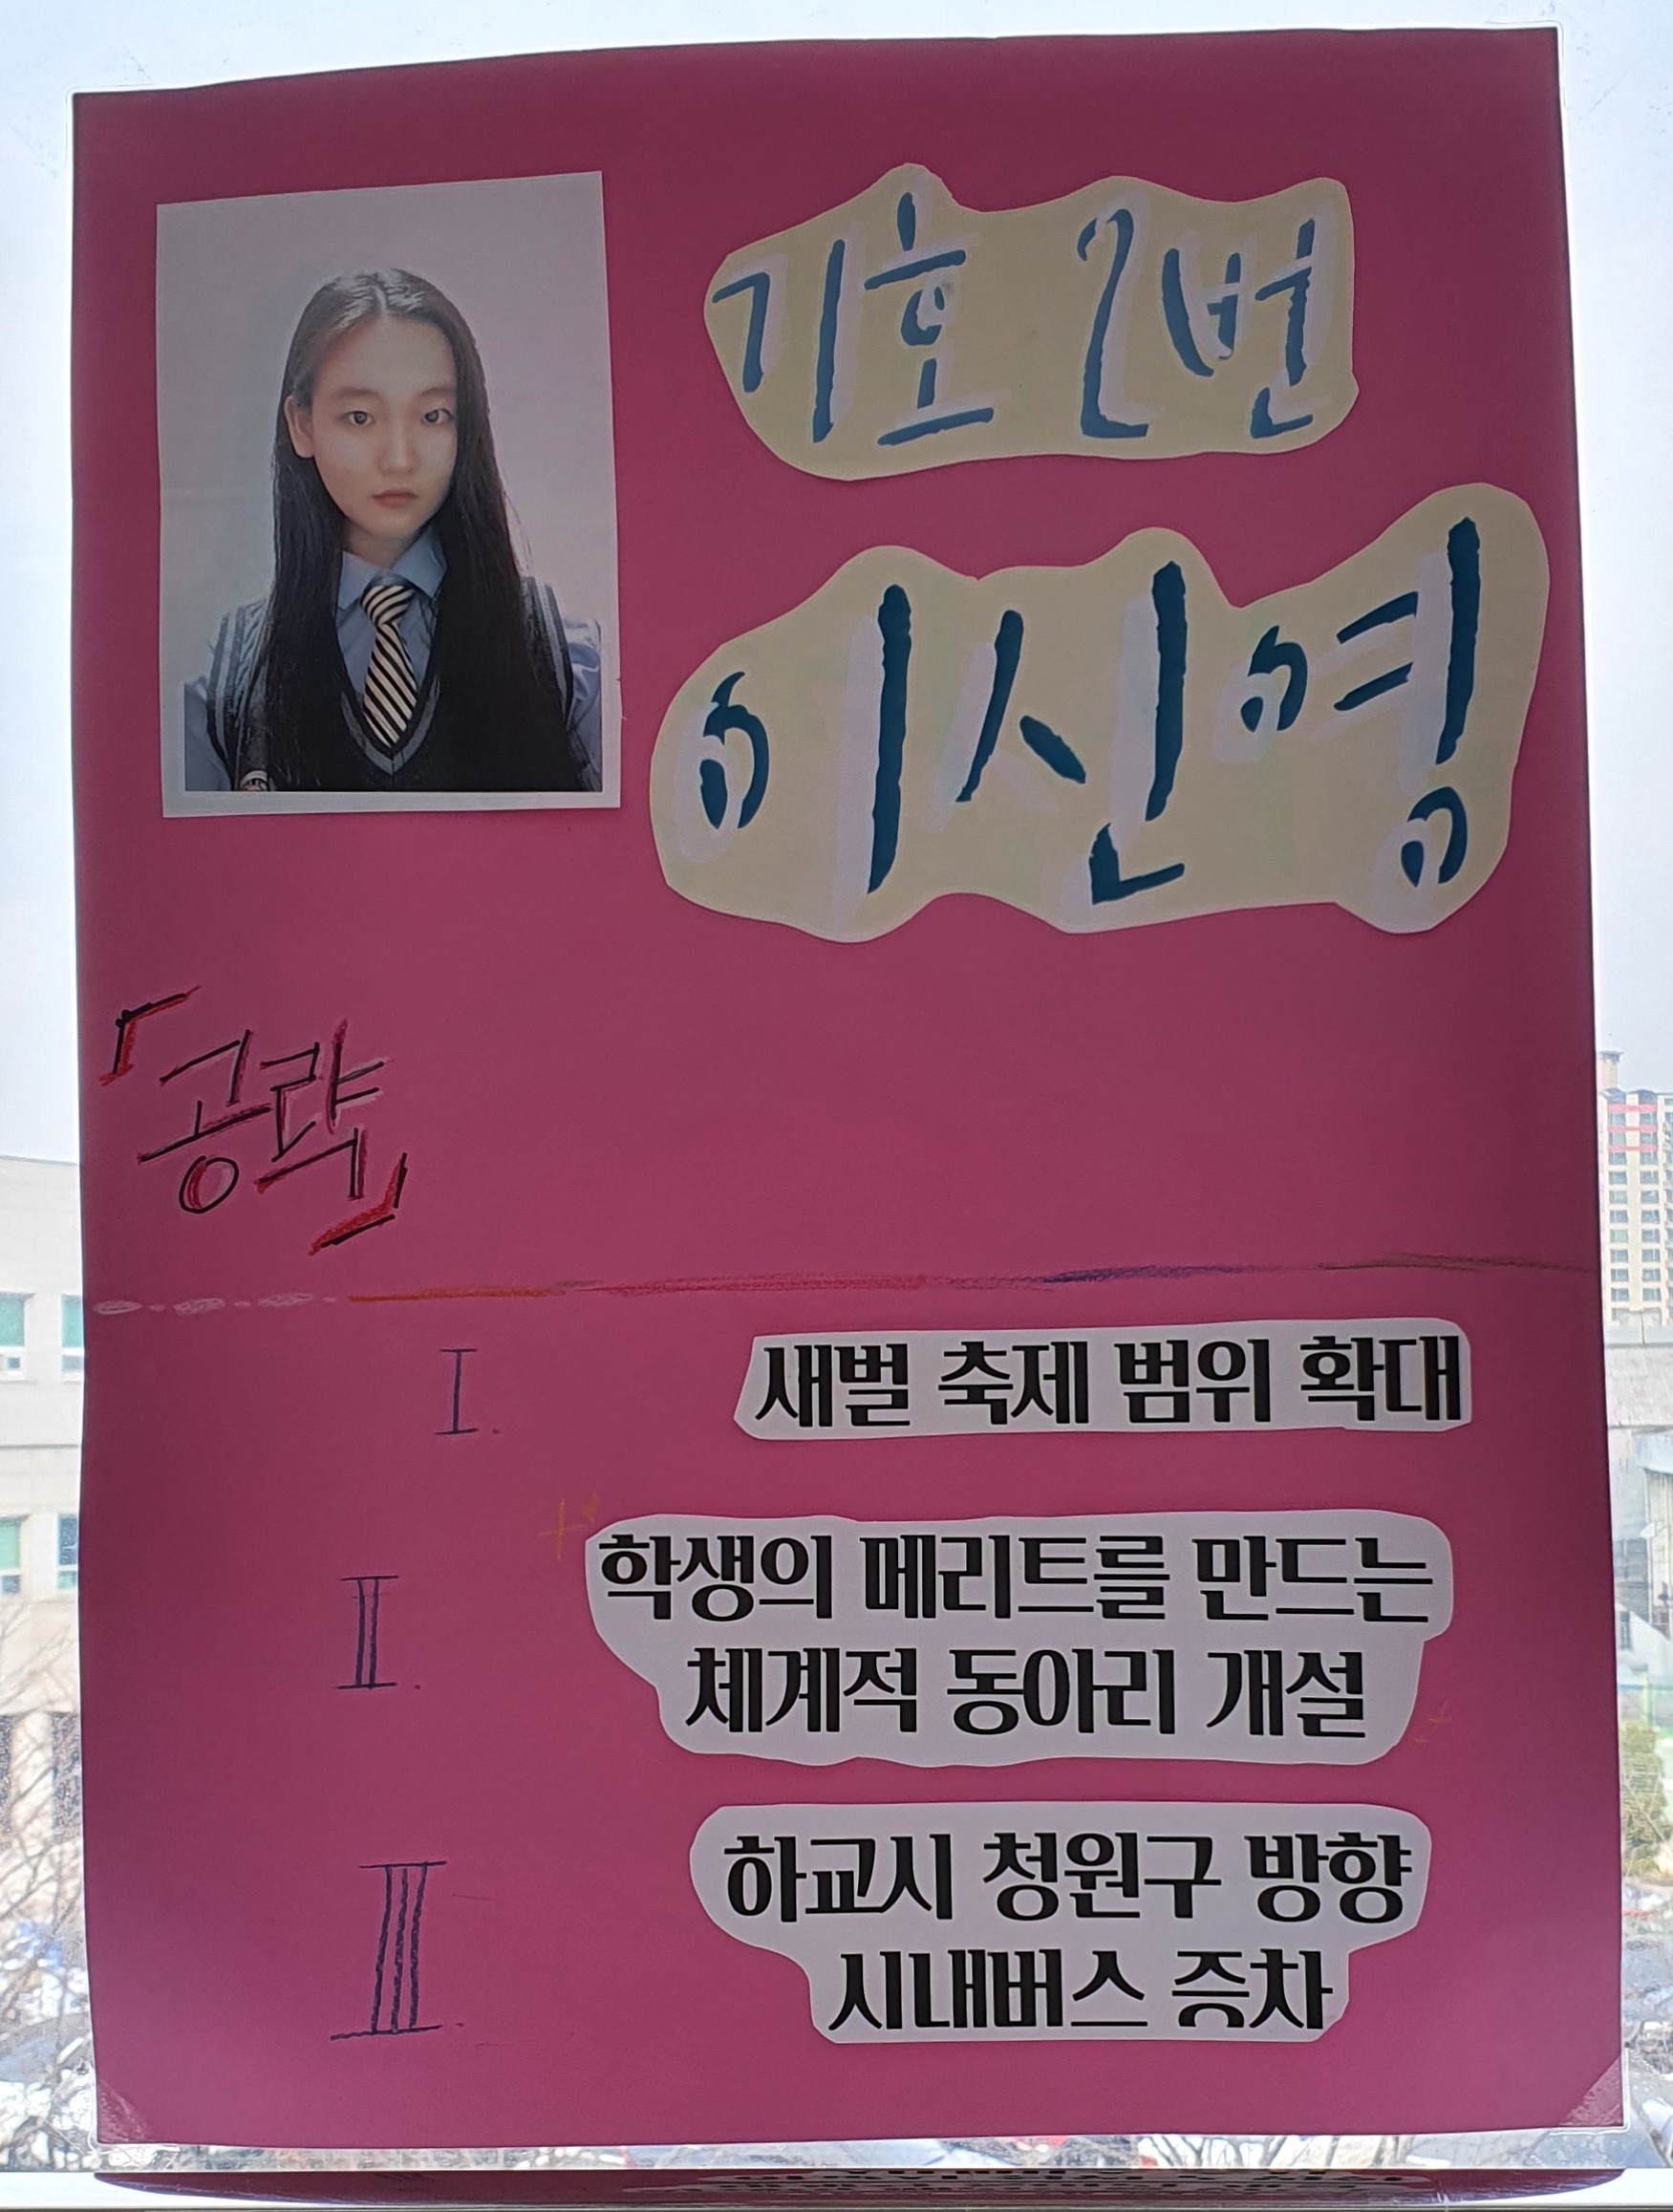 기호 2번
이신영
「공략」
I. 새벌 축제 범위 확대
II. 학생의 메리트를 만드는
체계적 동아리 개설
III. 하교시 청원구 방향
시내버스 증차